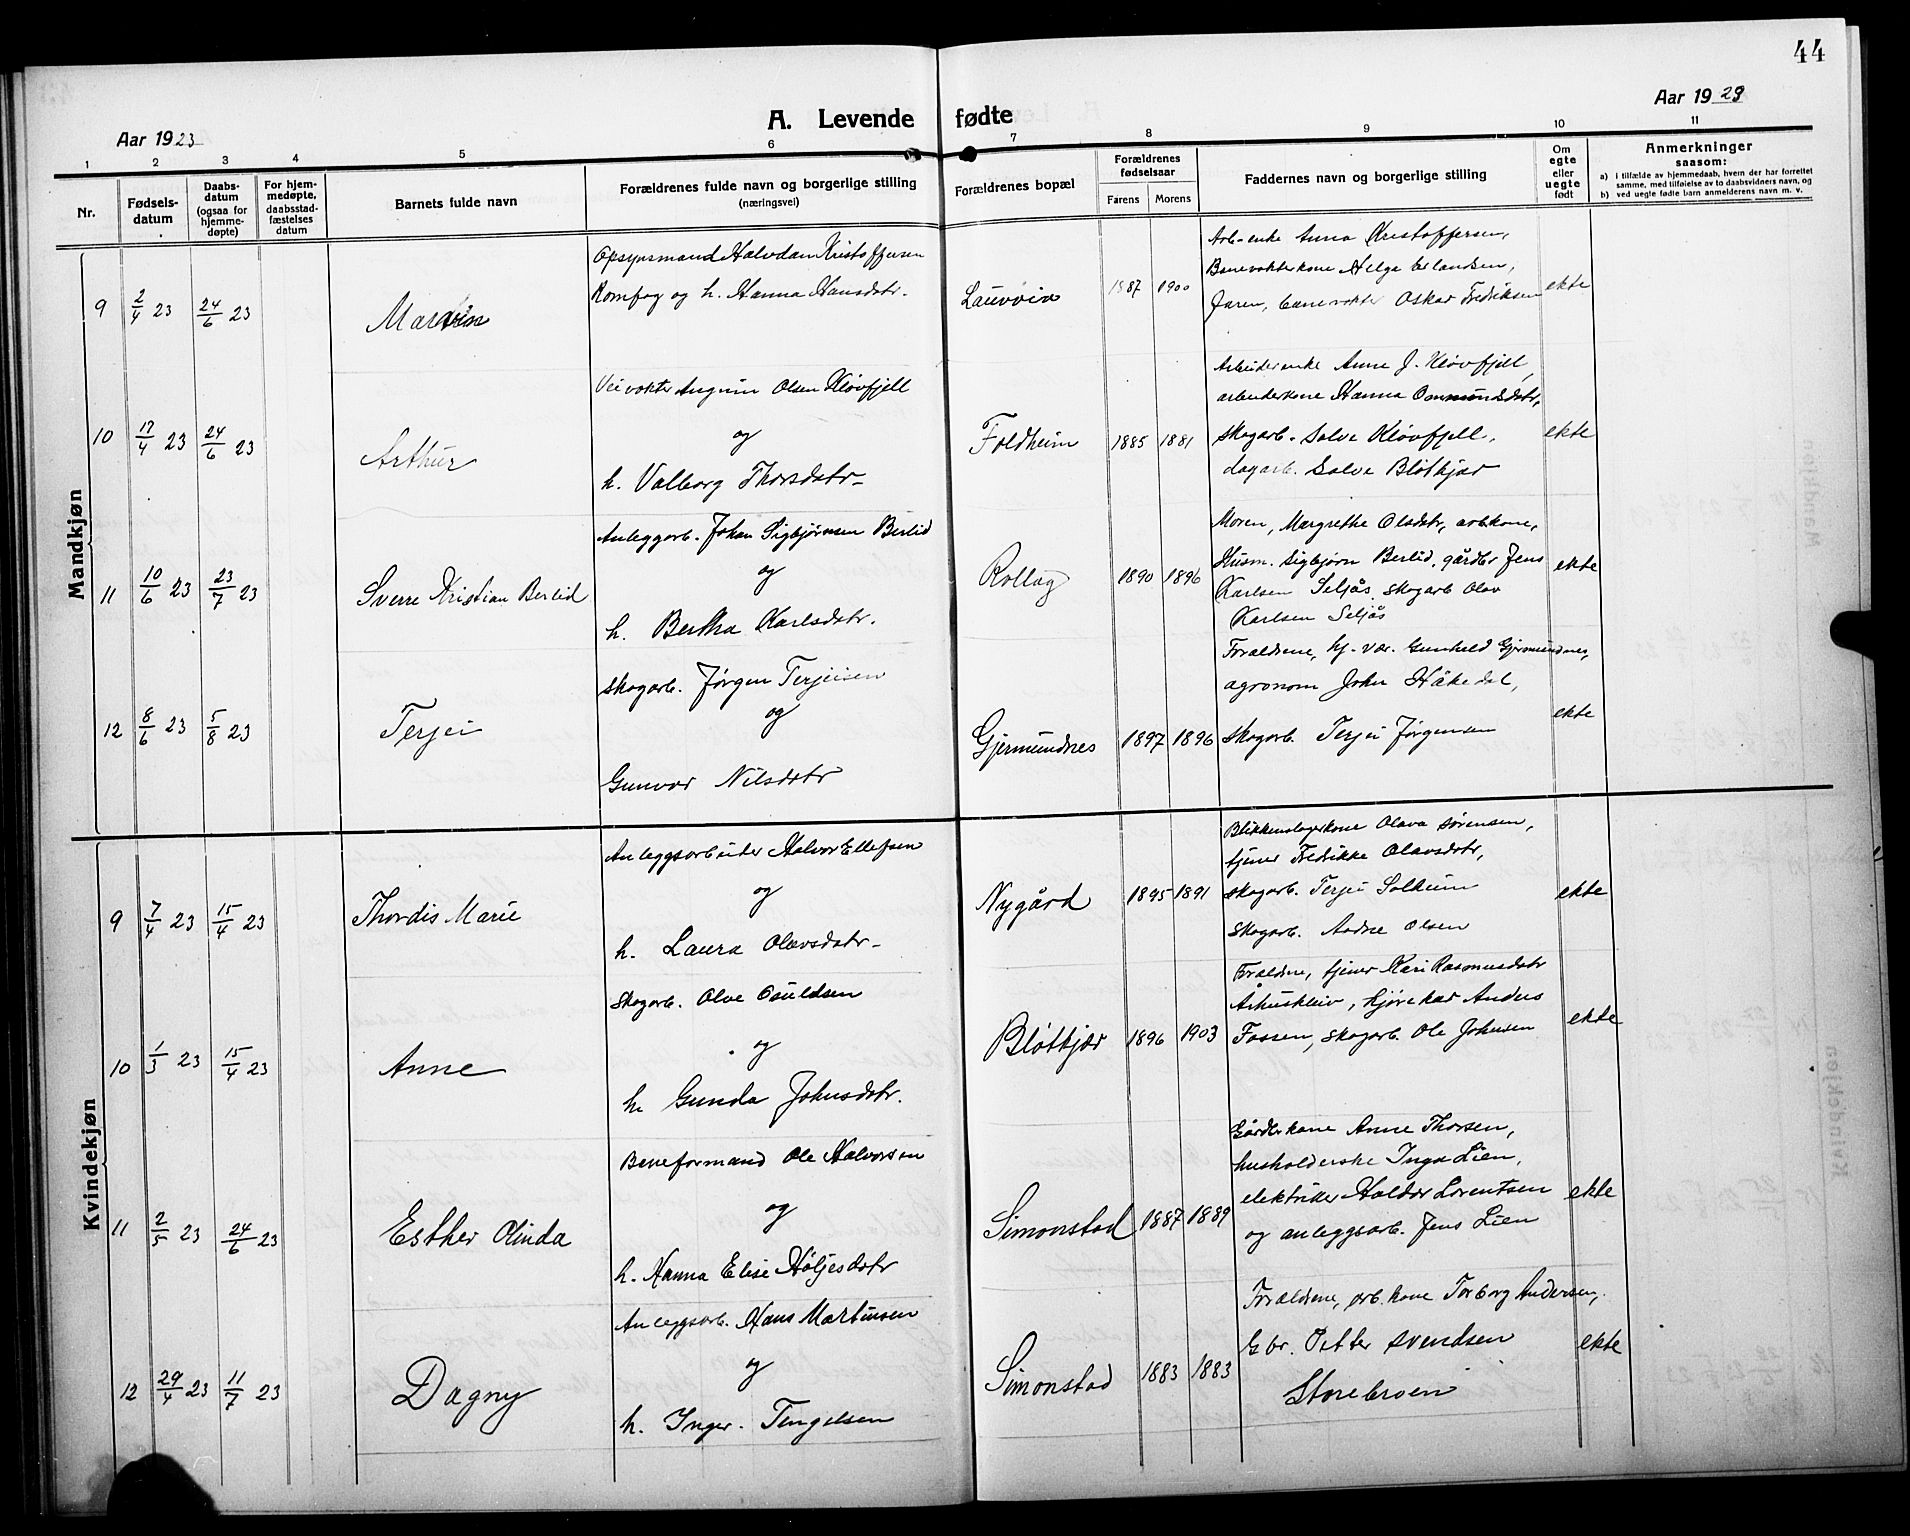 44
Aar 1923
A. Levende fødte
Aar 1923
1 2 3 4 5 6 7 8 9 10 11
Nr.
Fødsels-
datum
Daabs-
datum
(ogsaa for
hjemme-
døpte)
For hjem-
medøpte,
daabsstad-
fæstelses
datum
Barnets fulde navn
Forældrenes fulde navn og borgerlige stilling
(næringsvei)
Forældrenes bopæl
Forældrenes
fødselsaar
Farens Morens
Faddernes navn og borgerlige stilling
Om
egte
eller
uegte
født
Anmerkninger
saasom:
a) i tilfælde av hjemmedaab, hvem der har forrettet
samme, med tilføielse av to daabsvidners navn, og
b) ved uegte født barn anmelderens navn m. v.
Mandkjøn
9 2/4 23 24/6 23
Marvin
Opsynsmand Halvdan Kristoffersen
Romfog og h. Hanna Hansdatr.
1887 1900
Arb-enke Anna Kristoffersen,
Banevokterkone Helga Erlandsen,
Faren, banevokter Oskar Fredriksen
ekte
10 17/4 23 24/6 23
Arthur
Veivokter Olsen Kløvfjell
og
h. Valborg Thorsdatr.
Foldheim 1885 1881
Arbeiderenke Anne J. Kløvfjell,
arbeiderkone Hanna Ommundsdatr,
skogarb. Salve Kløvfjell,
dagarb. Salve Bløtkjær
ekte
11 10/6 23 23/7 23
Sverre Kristian Berlid
Anleggarb. Johan Sigbjørnsen Berlid
og
h. Bertha Karlsdatr.
Rollag 1890 1896
Moren, Margrethe Olsdatr, arbkone,
Husm. Sigbjørn Berlid, gårdbr Jens
Karlsen Seljås, skogarb Olav
Karlsen Seljås
ekte
12 8/6 23 5/8 23
Terjei
skogarb. Jørgen Terjeisen
og
Gunvor Nilsdatr
Gjermundnes 1897 1896
Foreldrene, hj. vær. Gunhild Gjermundnes,
agronom John Håkedal,
skogarb. Terjei Jørgensen
ekte
Kvindekjøn
9 7/4 23 15/4 23
Thordis Marie
Anleggsarbeider Halvor Ellefsen
og
h. Laura Olavsdatr.
Nygård 1895 1891
Blikkenslagerkone Olava Sørensen,
tjener Fredrikke Olavsdatr,
skogarb. Terjei Solheim
skogarb. Aadne Olsen
ekte
10 1/3 23 15/4 23
Anne
Skogarb. Olve Osuldsen
og
h. Gunda Johnsdatr.
Bløtkjær 1896 1903
Foreldrene, tjener Kari Rasmusdatr
Århuskleiv, kjørekar Anders
Fossen, skogarb. Ole Johnsen
ekte
11 2/5 23 24/6 23
Esther Olinda
Baneformand Ole Halvorsen
og
h. Hanna Elise Høljesdatr
Simonstad 1887 1889
Gårdbrkone Anne Thorsen,
husholderske Inga Lien,
elektriker Haldor Lorentsen
og anleggsarb. Jens Lien
ekte
12 29/4 23 11/7 23
Dagny
Anleggsarb. Hans Martinsen
og
h. Inger Tengelsen
Simonstad 1883 1883
Foreldrene, arb.kone Torborg Andersen,
Gbr. Petter Svendsen
Storebroen
ekte